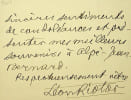 sincères sentiments
de condoléances et pré
sentez mes meilleurs
souvenirs à
Bernard.
Respectueusement vôtre
Léon Riotor